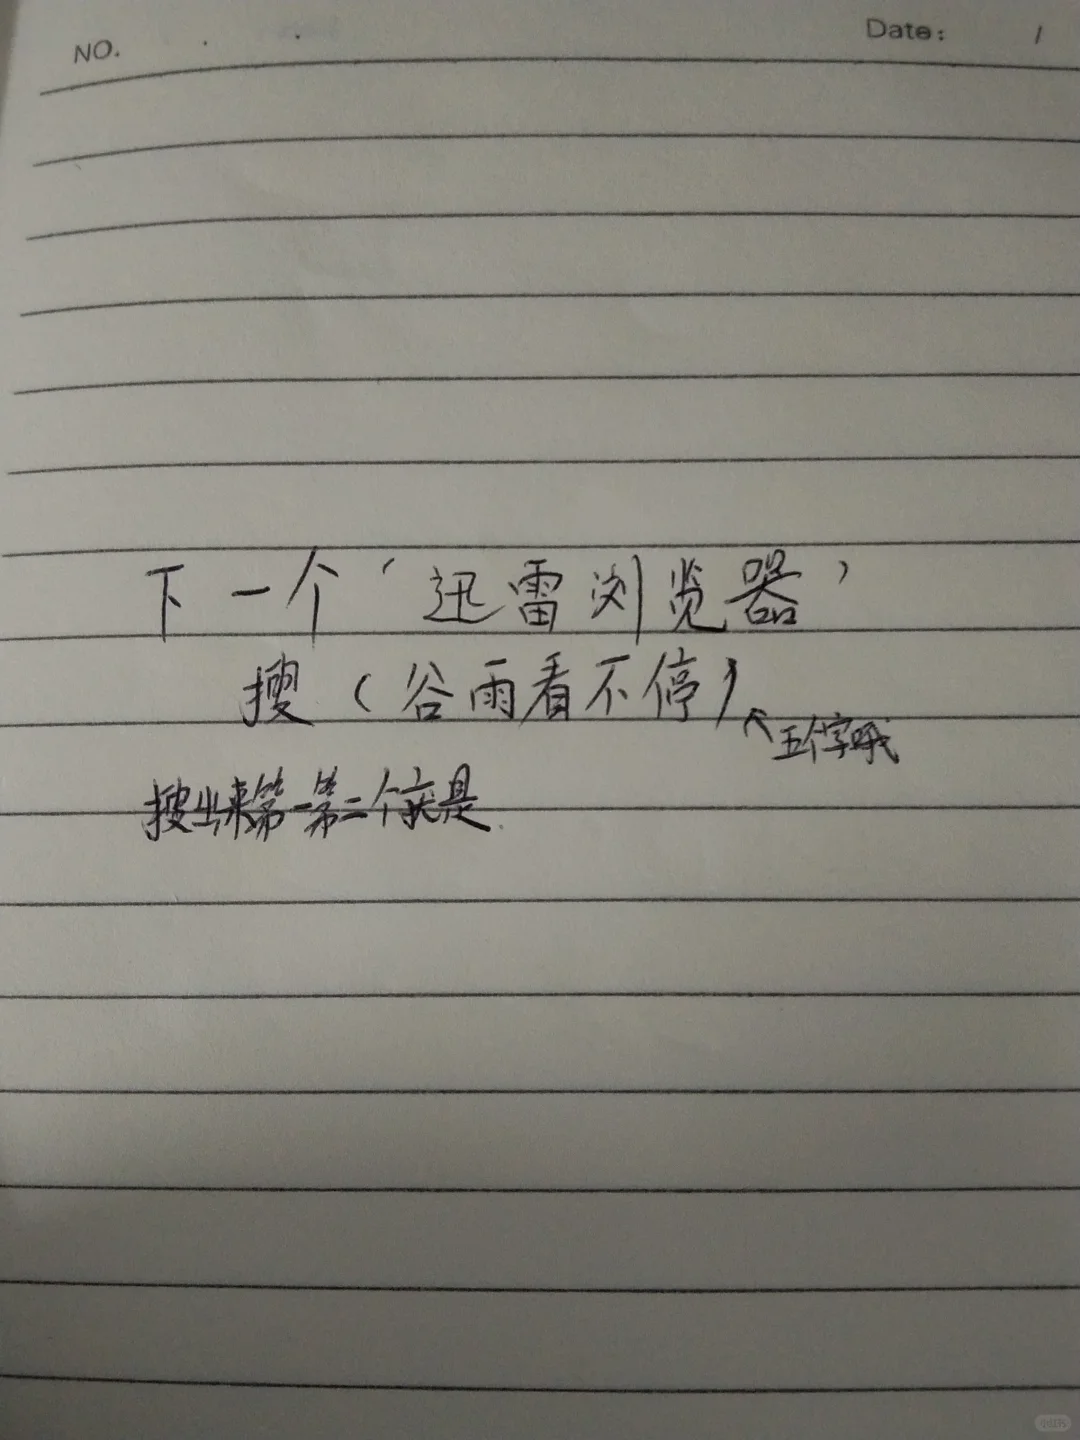 NO.
Date: /
下一个‘迅雷浏览器’
搜（谷雨看不停）
↖五个字哦
搜出来第一第二个就是.
小红书